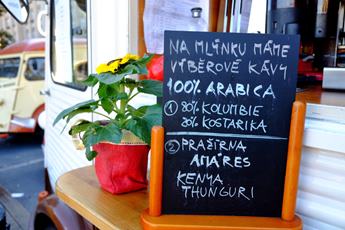 NA MLÝNKU MÁME
VÝBĚROVÉ KÁVY
100% ARABICA
① 80% KOLUMBIE
20% KOSTARIKA
② PRAŽÍRNA
AMARES
KENYA
THUNGURI